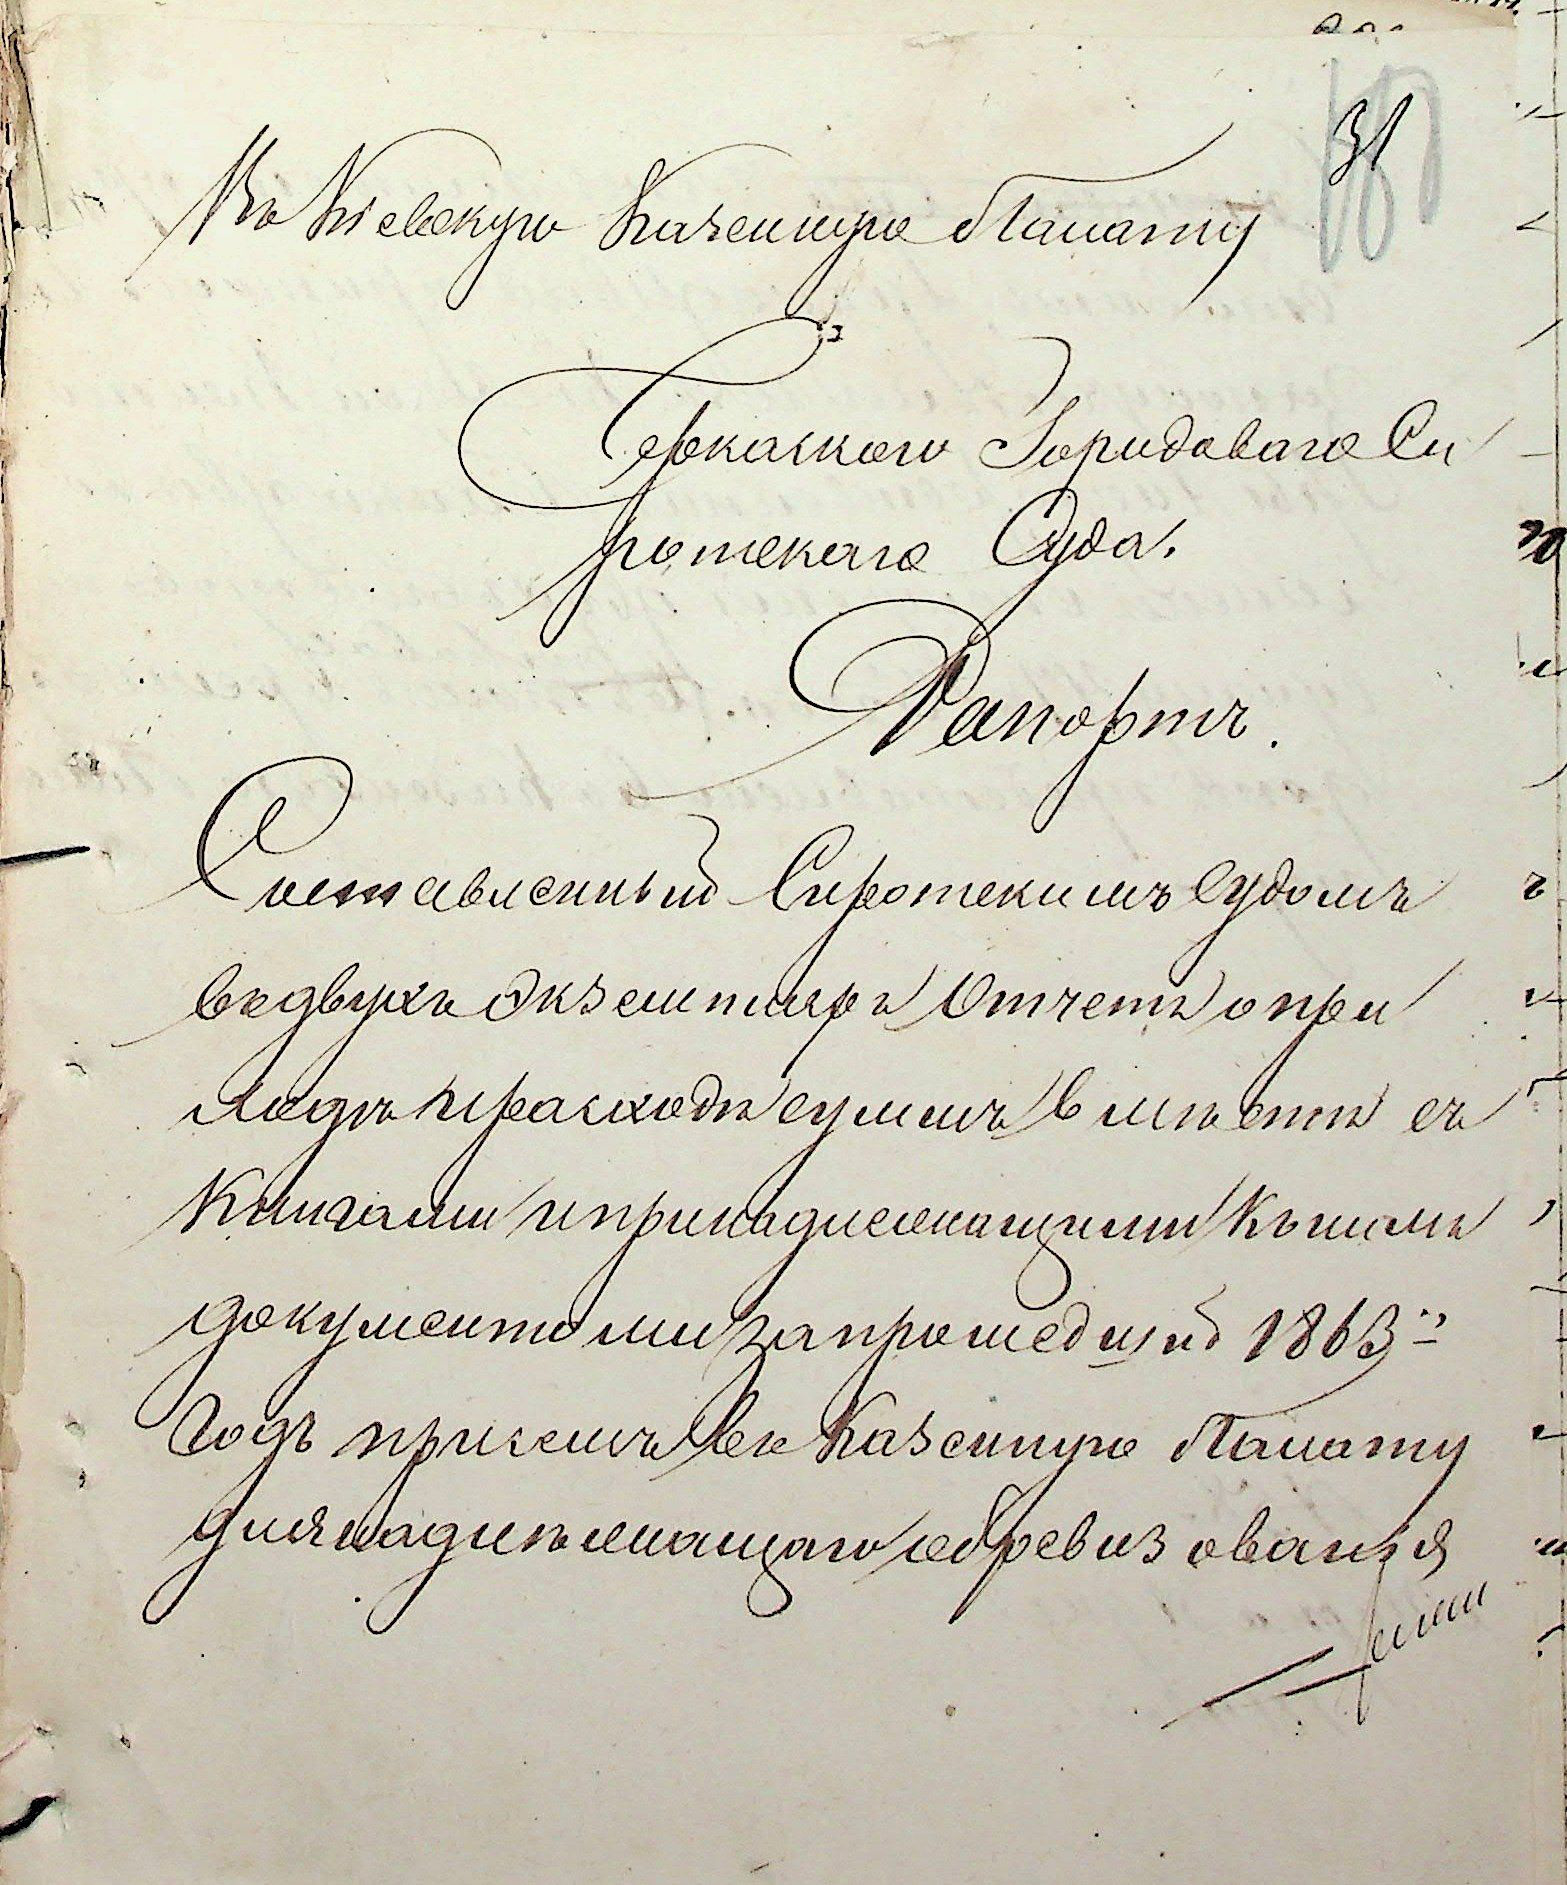 31
Въ Кіевскую Казенную Палату
Черкаскаго Городоваго Си
ротскаго Суда.
Рапортъ.
Составленный Сиротскимъ Судомъ
въ двухъ экземплярѣ Отчетъ о при
ходѣ и расходѣ суммъ вмѣстѣ съ
Книгами и принадлежащими къ нимъ
документами за прошедший 1863й
Годъ при семъ въ Казенную Палату
для надлѣжащаго обревизованія